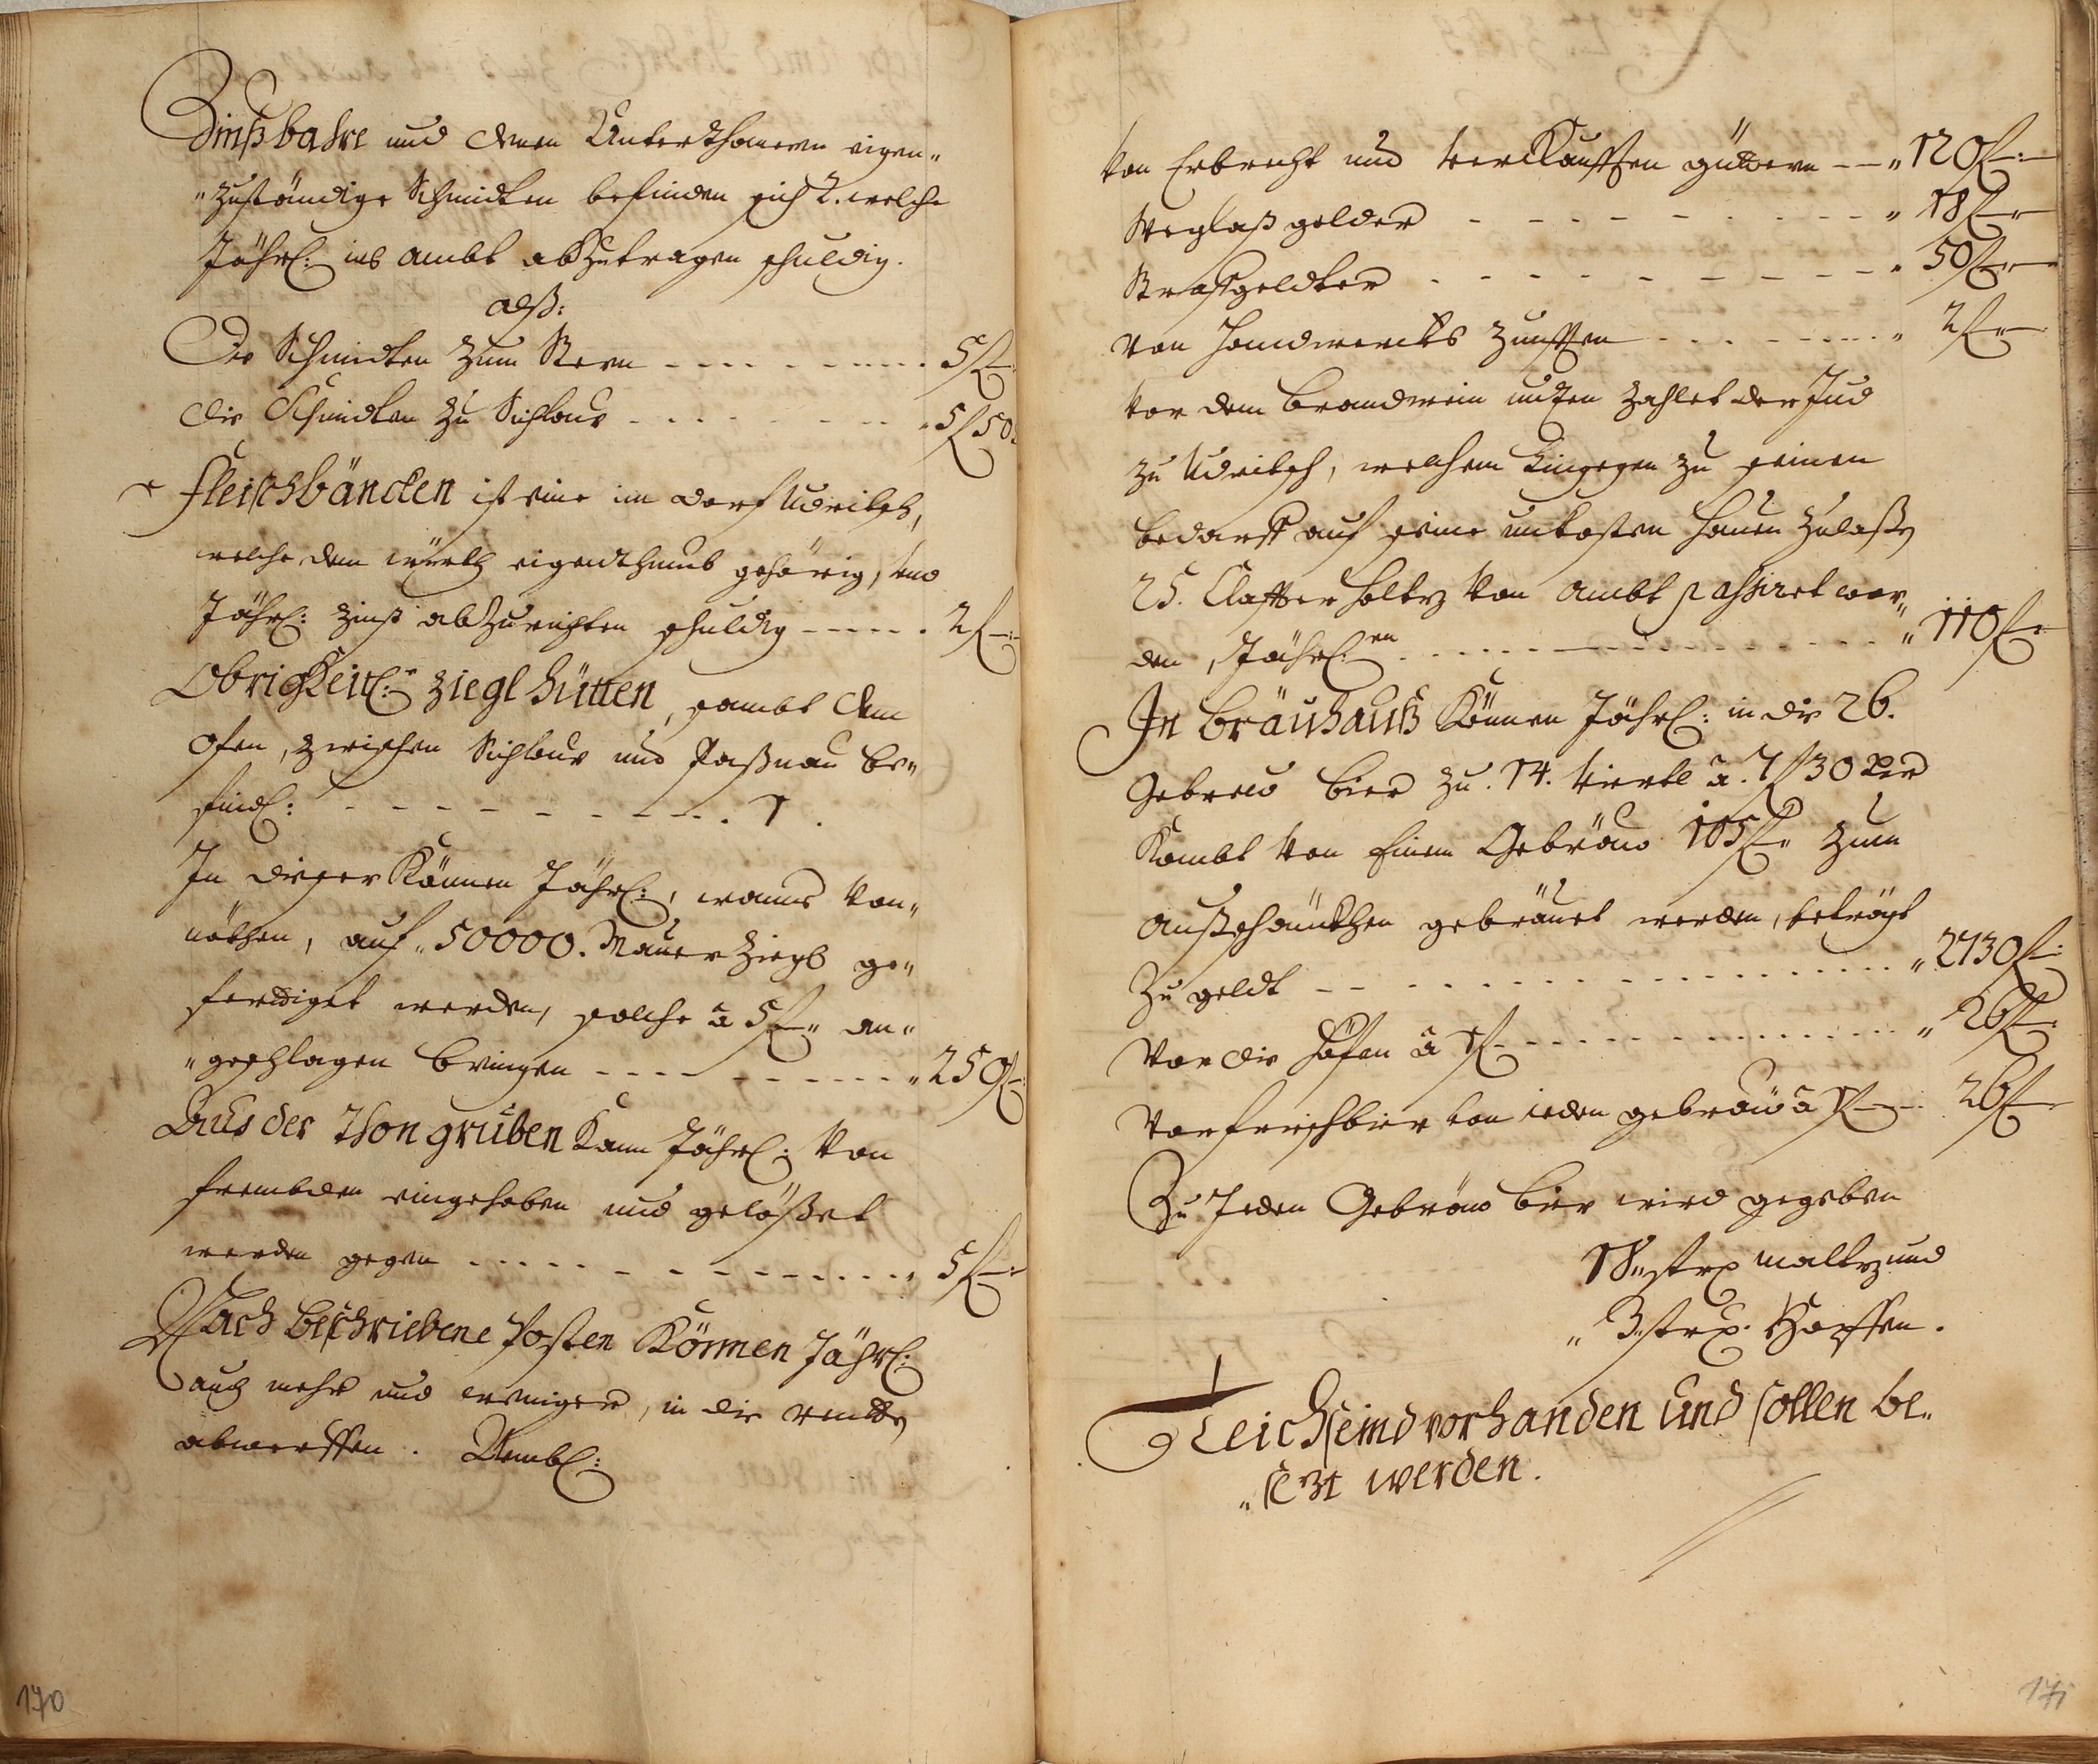 Zinßbahre und denen Unterthanen eigen„
„zuständige Schmidten befinden sich 2. welche
Jährl: ins ambt abzutragen schuldig.
alß:
Die Schmidten zum Stern - - - - - - - - 5 f —
die Schmidten zu Sichlau - - - - - - - „ 5 f 50.
Fleischbäncken ist eine im dorf Udritsch,
welche dem würth eigenthumb gehörig, und
Jährl: zinß abzurichten schuldig - - - - - . 2 f —
Obrigkeitl: Ziegl hütten, sambt dem
ofen, zwischen Sichlau und Paßnau be„
findl: - - - - - - - - - . 1 .
In dieser Können Jährl:, wanns von„
nöthen, auf „ 50000. Mauer Ziegl ge„
fertiget werden, solche â 5 f — „ an„
„geschlagen bringen - - - - - - - - - „ 250 f —
Aus der Thon gruben kann Jährl: von
frembden eingehoben und gelößet
werden gegen - - - - - - - - - - - „ 5 f —
Nach beschriebene Posten Können Jährl:
auch mehr und weniger, in die rendten
abwerffen. Nembl:
170
von Erbrecht und verKaufften güttern - - „ 120 f —
Weglaß gelder - - - - - - - - - „ 18 f —
Straffgeldter - - - - - - - - - „ 50 f —
von Handwercks Zunfften - - - - - - - „ 2 f —
vor dem brandwein urthen zahlet der Jud
zu Udritsch, welchem hingegen zu seinen
bedarff auf seine unkosten hauen zulaßen
25. Claffter holtz von ambt passiret wor„
den, Jährl:en - - - - - - - - - - - - - „ 110 f —
In bräuhauß Können Jährl: in die 26.
Gebreu bier zu . 14. viertl â . 7 f 30 xr
Kombt von Einem Gebräu 105 f — „ zum
außschänckhen gebräuet werden, beträgt
zu geldt - - - - - - - - - - - - - „ 2730 f —
vor die Höfen â 1 f - - - - - - - - - „ 26 f —
vor frischbier von ieden gebräu â 1 f - - . 26 f —
Zu Jeden Gebräu bier wird gegeben
18 „ strx maltz und
„ 3 „ strx. Hopffen.
Teich seind vorhanden und sollen be„
„sezt werden.
171